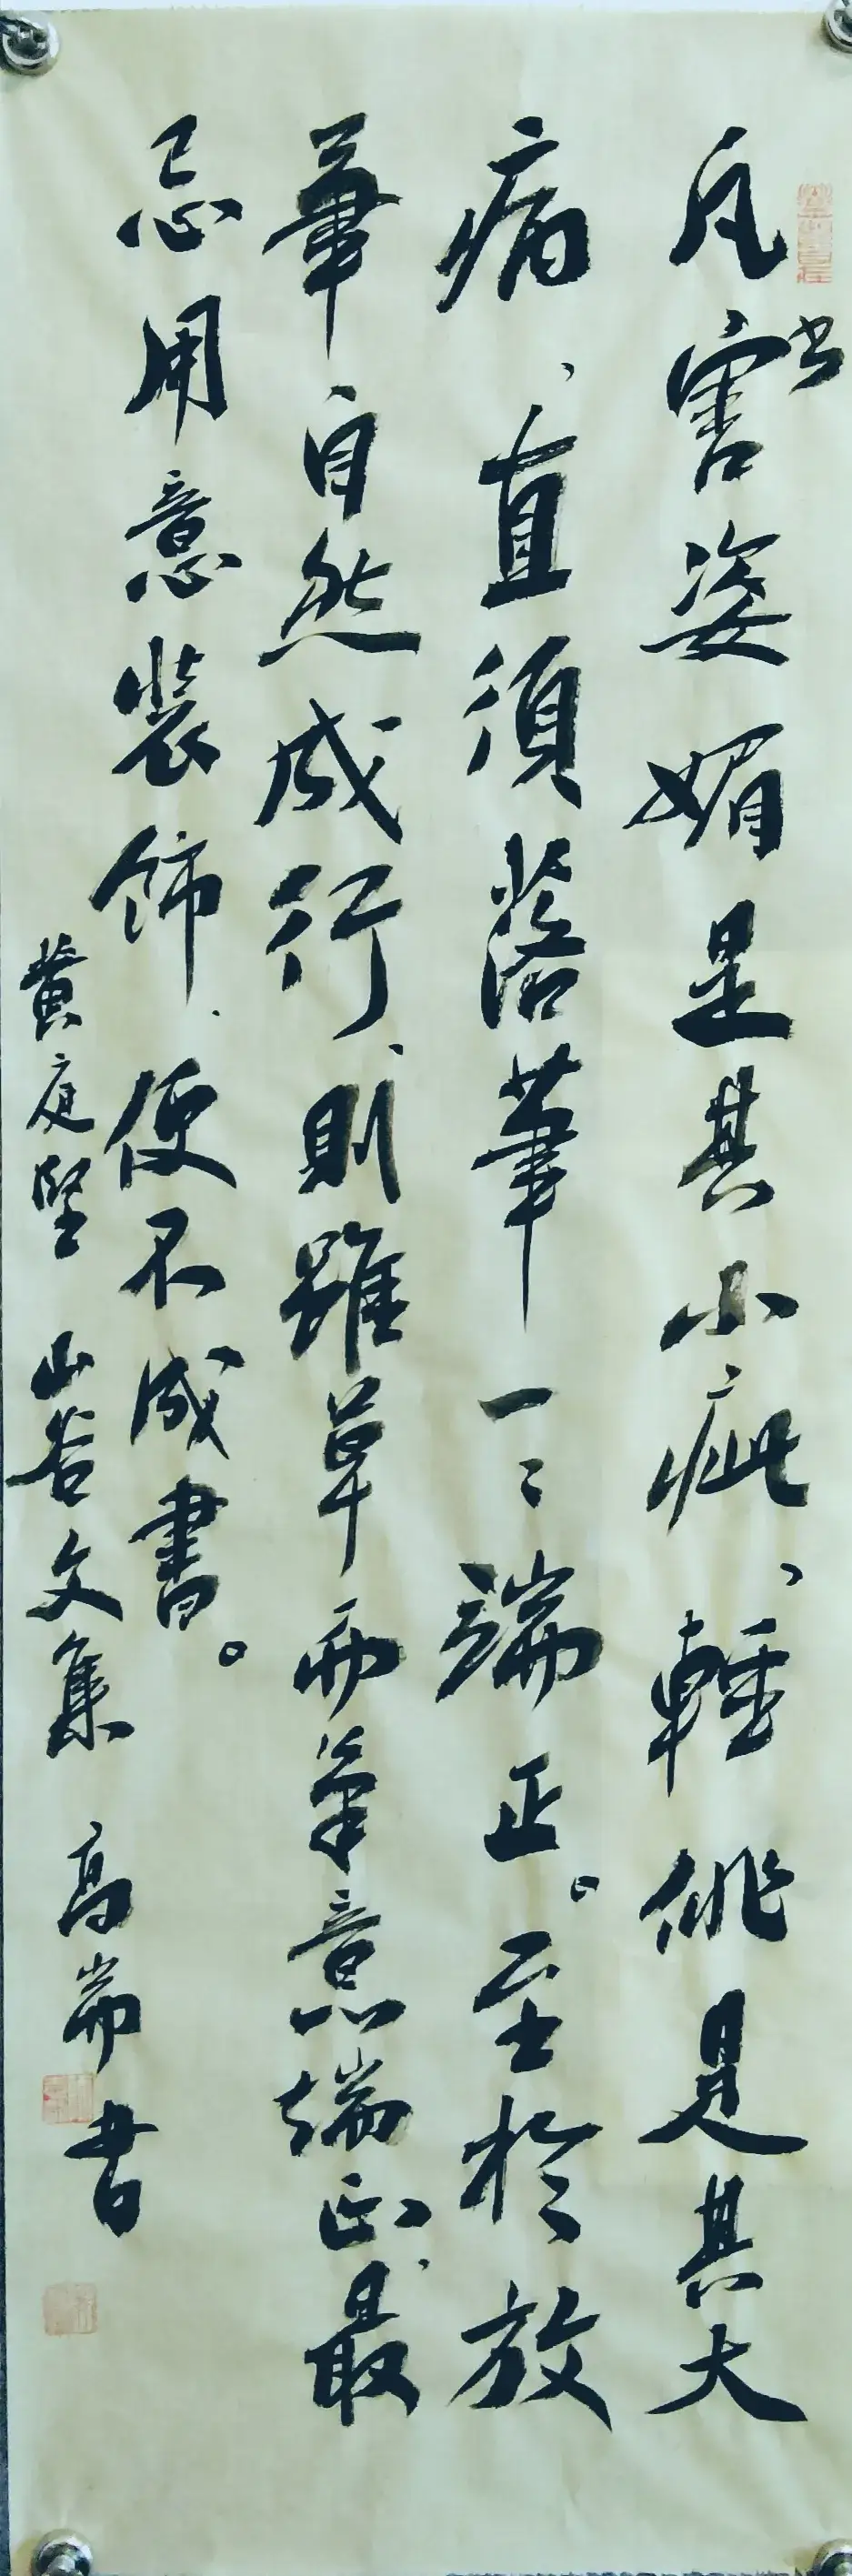 凡书害姿媚是其小疵、輕佻是其大
病、直須落筆一〻端正。至於放
筆自然成行、則雖草而筆意端正、最
忌用意装飾、便不成書。
黄庭堅 山谷文集 高耑书